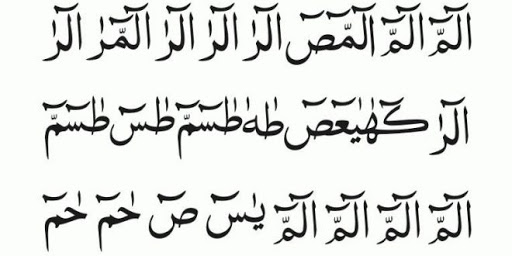 الٓمّٓ الٓمّٓ الٓمّٓصٓ الٓرٰ الٓرٰ الٓرٰ الٓمّٓرٰ الٓرٰ
الٓرٰ كٓهٰيٰعٓصٓ طٰهٰ طٰسٓمّٓ طٰسٓ طٰسٓمّٓ
الٓمّٓ الٓمّٓ الٓمّٓ الٓمّٓ يٰسٓ صٓ حٰمٓ حٰمٓ